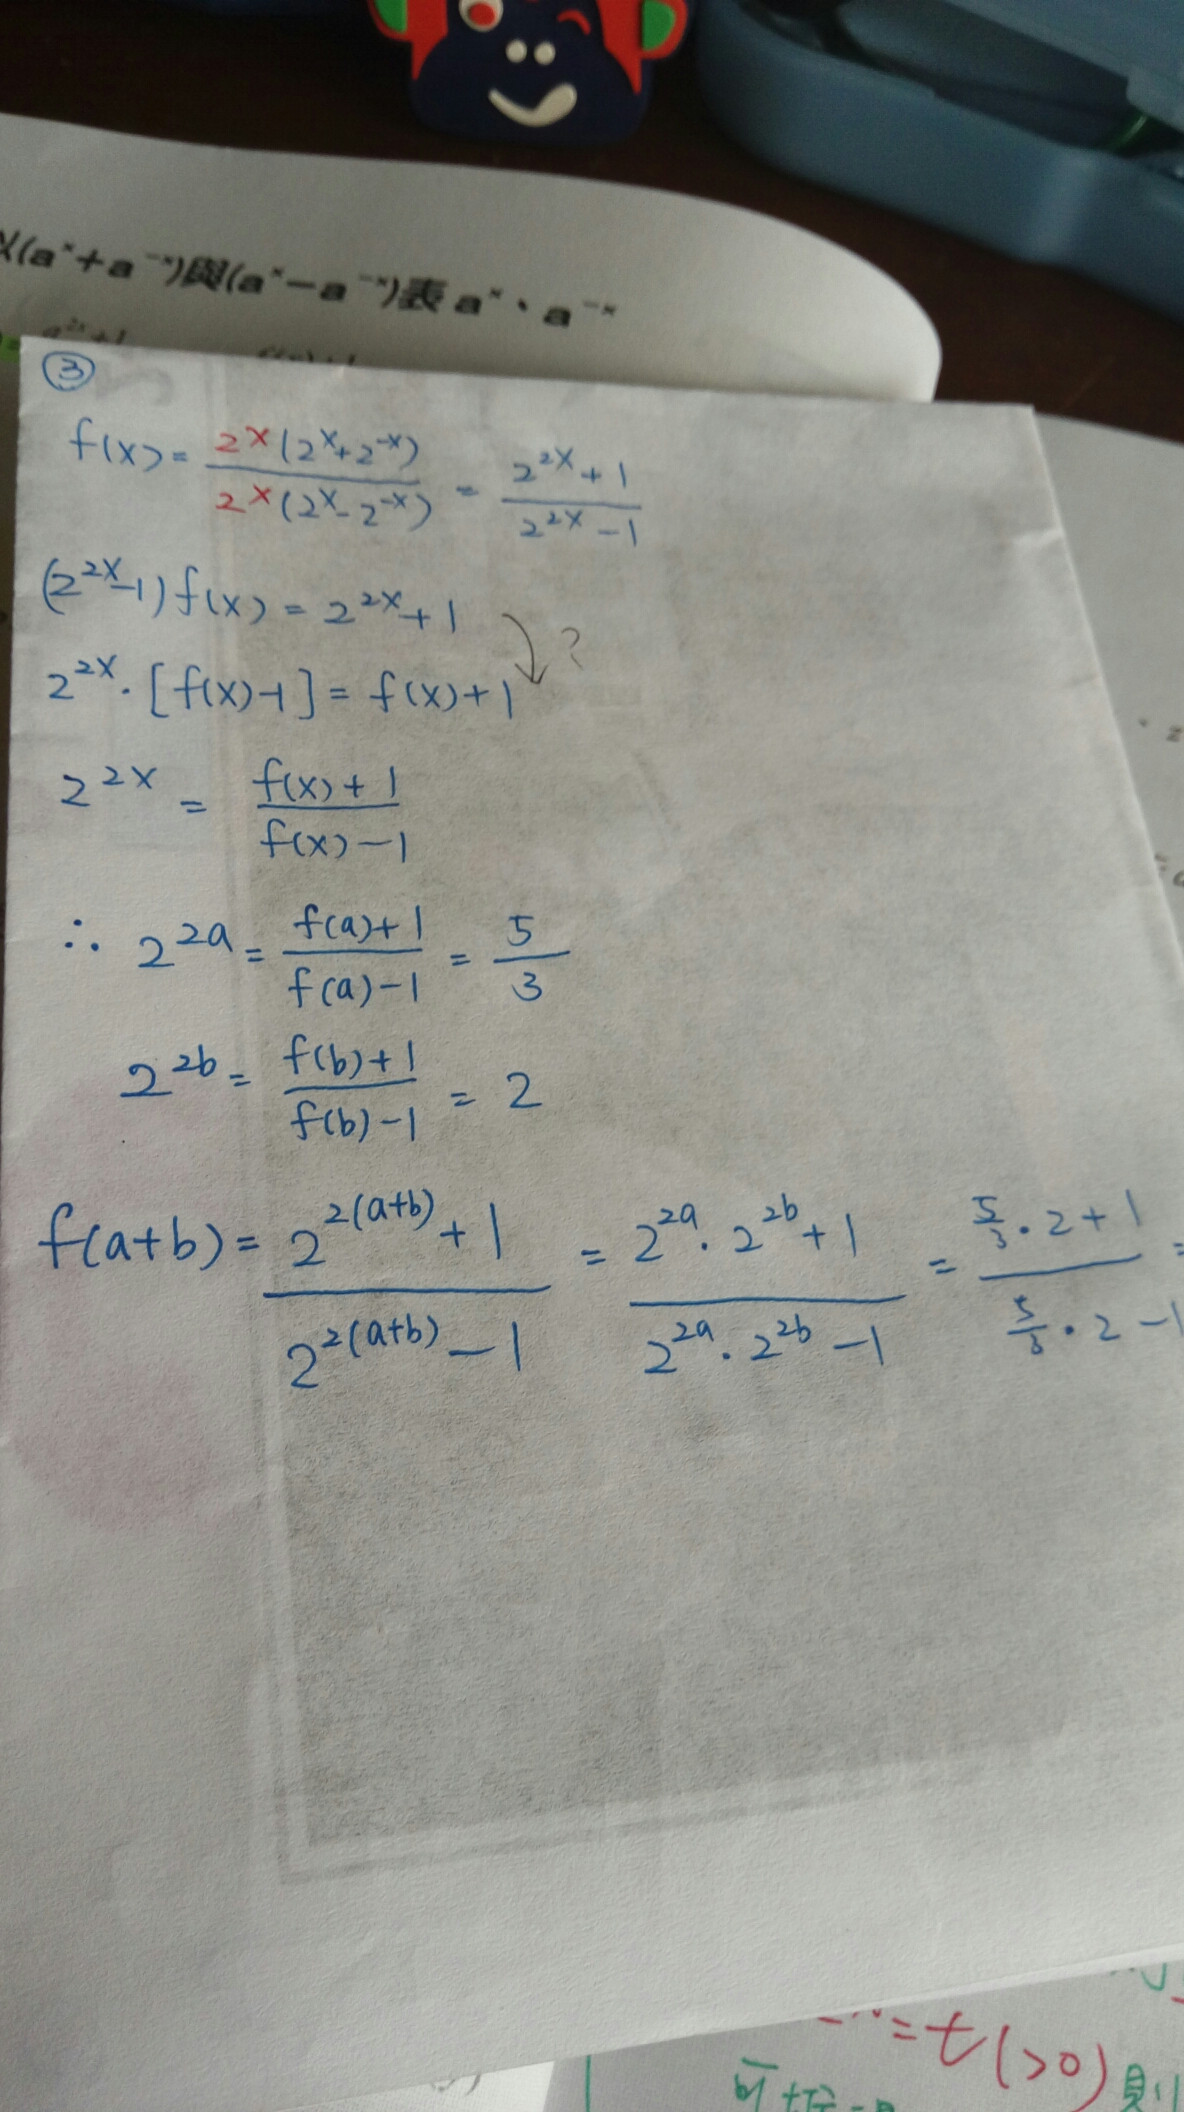 (aˣ+a⁻ˣ)與(aˣ-a⁻ˣ)表aˣ、a⁻ˣ
③
f(x)= 2ˣ(2ˣ+2⁻ˣ) / 2ˣ(2ˣ-2⁻ˣ) = 2²ˣ+1 / 2²ˣ-1
(2²ˣ-1)f(x)=2²ˣ+1 ?
2²ˣ·[f(x)-1]=f(x)+1
2²ˣ = f(x)+1 / f(x)-1
∴ 2^2a = f(a)+1 / f(a)-1 = 5/3
2^2b = f(b)+1 / f(b)-1 = 2
f(a+b)= 2^2(a+b)+1 / 2^2(a+b)-1 = 2^2a·2^2b+1 / 2^2a·2^2b-1 = 5/3·2+1 / 5/3·2-1 =
=t(>0)則